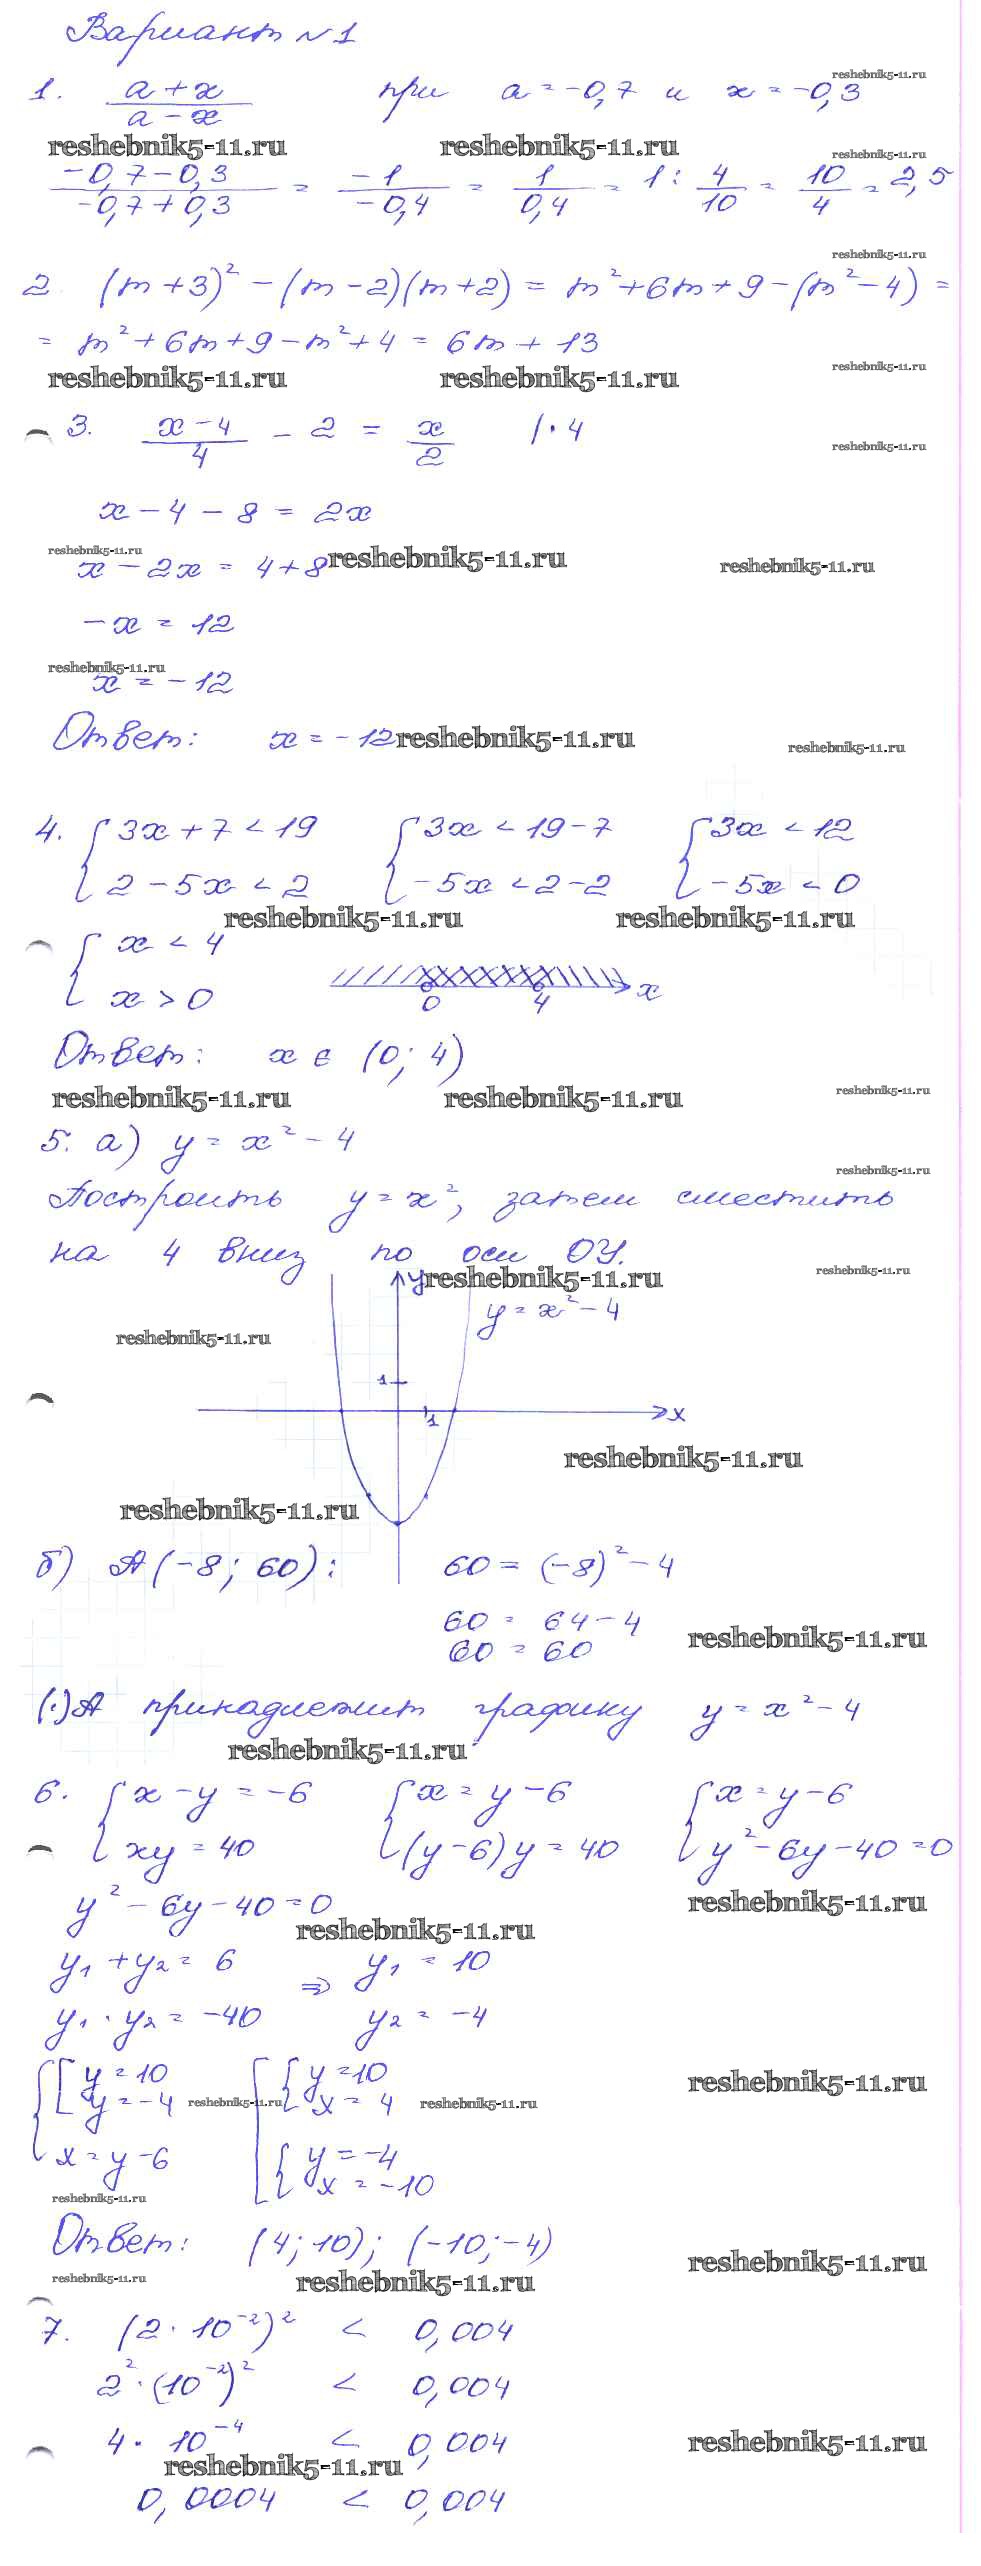 Вариант №1
reshebnik5-11.ru
1. (a + x)/(a − x) при a = −0,7 и x = −0,3
reshebnik5-11.ru reshebnik5-11.ru reshebnik5-11.ru
(−0,7−0,3)/(−0,7+0,3) = −1/−0,4 = 1/0,4 = 1 : 4/10 = 10/4 = 2,5
reshebnik5-11.ru
2. (m+3)² − (m−2)(m+2) = m²+6m+9−(m²−4) =
= m²+6m+9−m²+4 = 6m + 13
reshebnik5-11.ru reshebnik5-11.ru reshebnik5-11.ru
3. (x−4)/4 − 2 = x/2 /·4
reshebnik5-11.ru
x − 4 − 8 = 2x
reshebnik5-11.ru reshebnik5-11.ru reshebnik5-11.ru
x − 2x = 4+8
−x = 12
reshebnik5-11.ru
x = −12
Ответ: x = −12 reshebnik5-11.ru reshebnik5-11.ru
4. { 3x + 7 < 19 { 3x < 19−7 { 3x < 12
2 − 5x < 2 −5x < 2−2 −5x < 0
reshebnik5-11.ru reshebnik5-11.ru
{ x < 4
x > 0 0 4 x
Ответ: x ∈ (0; 4)
reshebnik5-11.ru reshebnik5-11.ru reshebnik5-11.ru
5. а) y = x² − 4
reshebnik5-11.ru
Построить y = x², затем сместить
на 4 вниз по оси OY.
y reshebnik5-11.ru reshebnik5-11.ru
y = x² − 4
reshebnik5-11.ru
1
1 x
reshebnik5-11.ru
reshebnik5-11.ru
б) A(−8; 60): 60 = (−8)² − 4
60 = 64 − 4
reshebnik5-11.ru
60 = 60
(·)A принадлежит графику y = x² − 4
reshebnik5-11.ru
6. { x − y = −6 { x = y − 6 { x = y − 6
xy = 40 (y−6)y = 40 y² − 6y − 40 = 0
y² − 6y − 40 = 0 reshebnik5-11.ru
reshebnik5-11.ru
y₁ + y₂ = 6 ⇒ y₁ = 10
y₁ · y₂ = −40 y₂ = −4
{ [ y = 10 [ { y = 10 reshebnik5-11.ru
y = −4 reshebnik5-11.ru x = 4 reshebnik5-11.ru
x = y − 6 { y = −4
x = −10
reshebnik5-11.ru
Ответ: (4; 10); (−10; −4)
reshebnik5-11.ru
reshebnik5-11.ru reshebnik5-11.ru
7. (2 · 10⁻²)² < 0,004
2² · (10⁻²)² < 0,004
4 · 10⁻⁴ < 0,004 reshebnik5-11.ru
reshebnik5-11.ru
0,0004 < 0,004